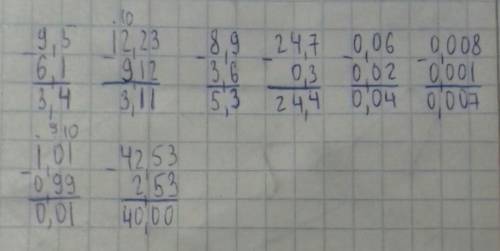 . 10
9,5 12,23 8,9 24,7 0,06 0,008
- - - - - -
6,1 9,12 3,6 0,3 0,02 0,001
3,4 3,11 5,3 24,4 0,04 0,007
. 9 10
1,01 42,53
- -
0,99 2,53
0,01 40,00